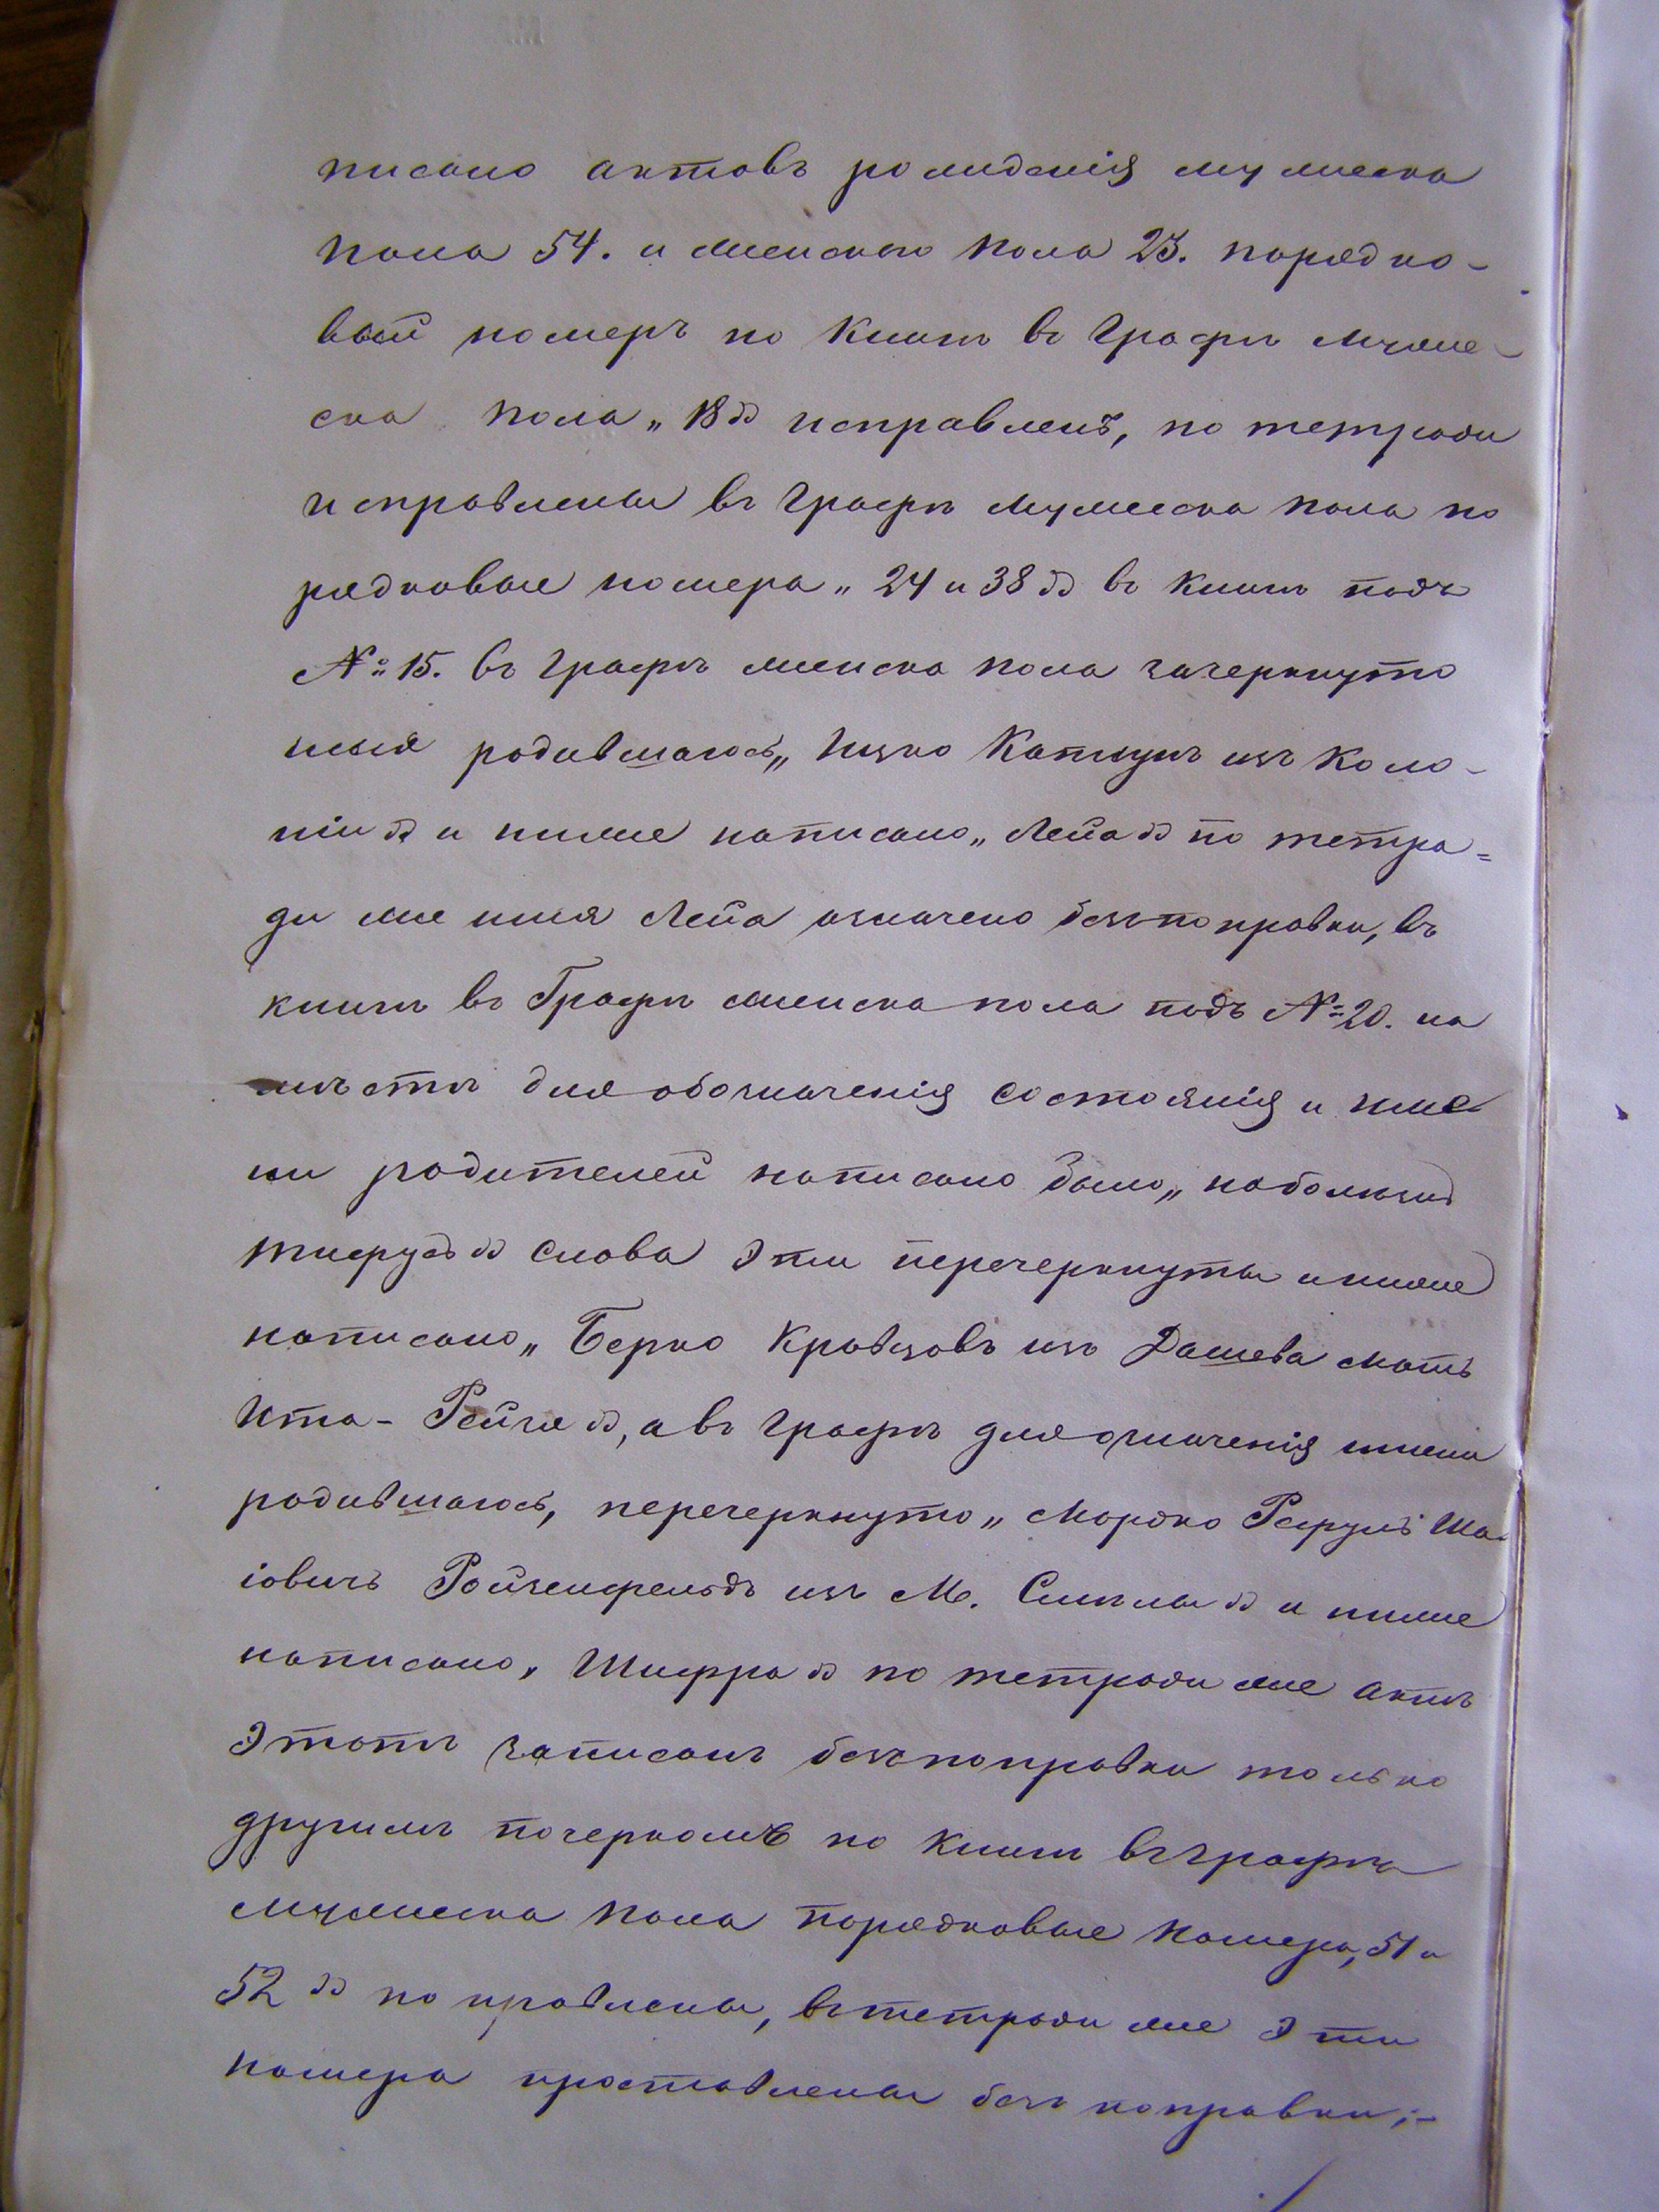 писано актовъ рожденія мужеска
пола 54. и женскаго пола 23. порядко-
вый номеръ по книгѣ въ графѣ муже-
ска пола „18" исправленъ, по тетради
исправлены въ графѣ мужеска пола по
рядковые номера „24 и 38" въ книгѣ подъ
№ 15. въ графѣ женска пола зачеркнуто
имя родившагося „Ицко Катлукъ изъ Коло-
ніи" и ниже написано „Лейа" по тетра=
ди же имя Лейа означено безъ поправки, въ
книгѣ въ Графѣ женска пола подъ № 20. на
мѣстѣ для обозначенія состоянія и име
ни родителей написано было „
слова эти перечеркнуты и ниже
написано „Берко Кравцовъ изъ Дашева мать
Ита-Рейзя", а въ графѣ для означенія имени
родившагося, перечеркнуто „Мордко Рефулъ Ша-
іовичъ Ройзенфельдъ изъ М. Смилы" и ниже
написано „Шифра" по тетради же актъ
этотъ записанъ безъ поправки только
другимъ почеркомъ по книгѣ въ графѣ
мужеска пола порядковые номера „51 и
52" поправлены, въ тетради же эти
номера проставлены безъ поправки;-